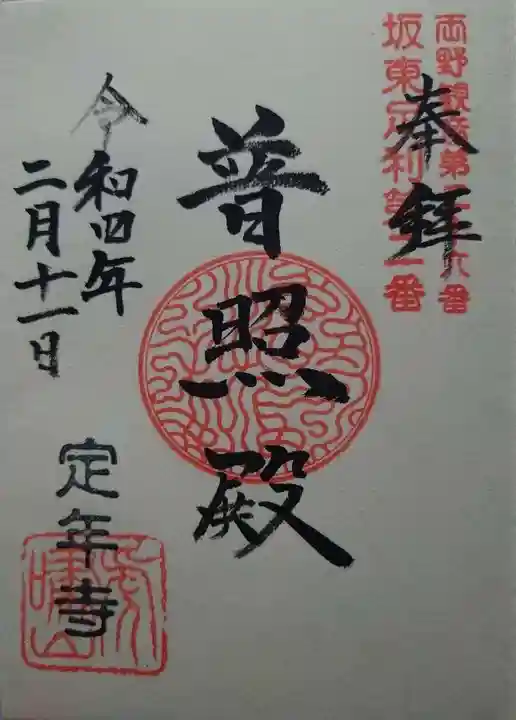 両野観音第二十六番
坂東足利第十一番
奉拝
普照殿
令和四年
二月十一日
定年寺